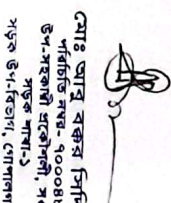 মোঃ আবু বকর সিদ্দি
পরিচিতি নম্বর-
উপ-সহকারী প্রকৌশলী, সও
সড়ক শাখা-১
সড়ক উপ-বিভাগ, গোপালগ